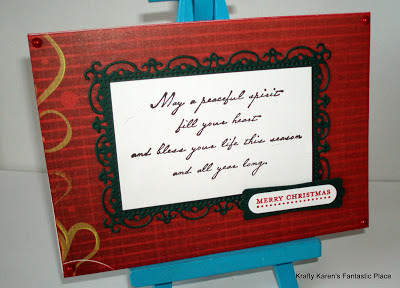 May a peaceful spirit
fill your heart
and bless your life this season
and all year long.
MERRY CHRISTMAS
Krafty Karen's Fantastic Place